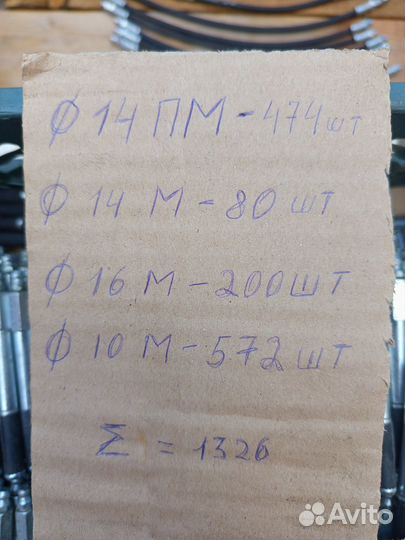 Ф 14 ПМ - 474 шт
Ф 14 М - 80 шт
Ф 16 М - 200 шт
Ф 10 М - 572 шт
Σ = 1326
Avito